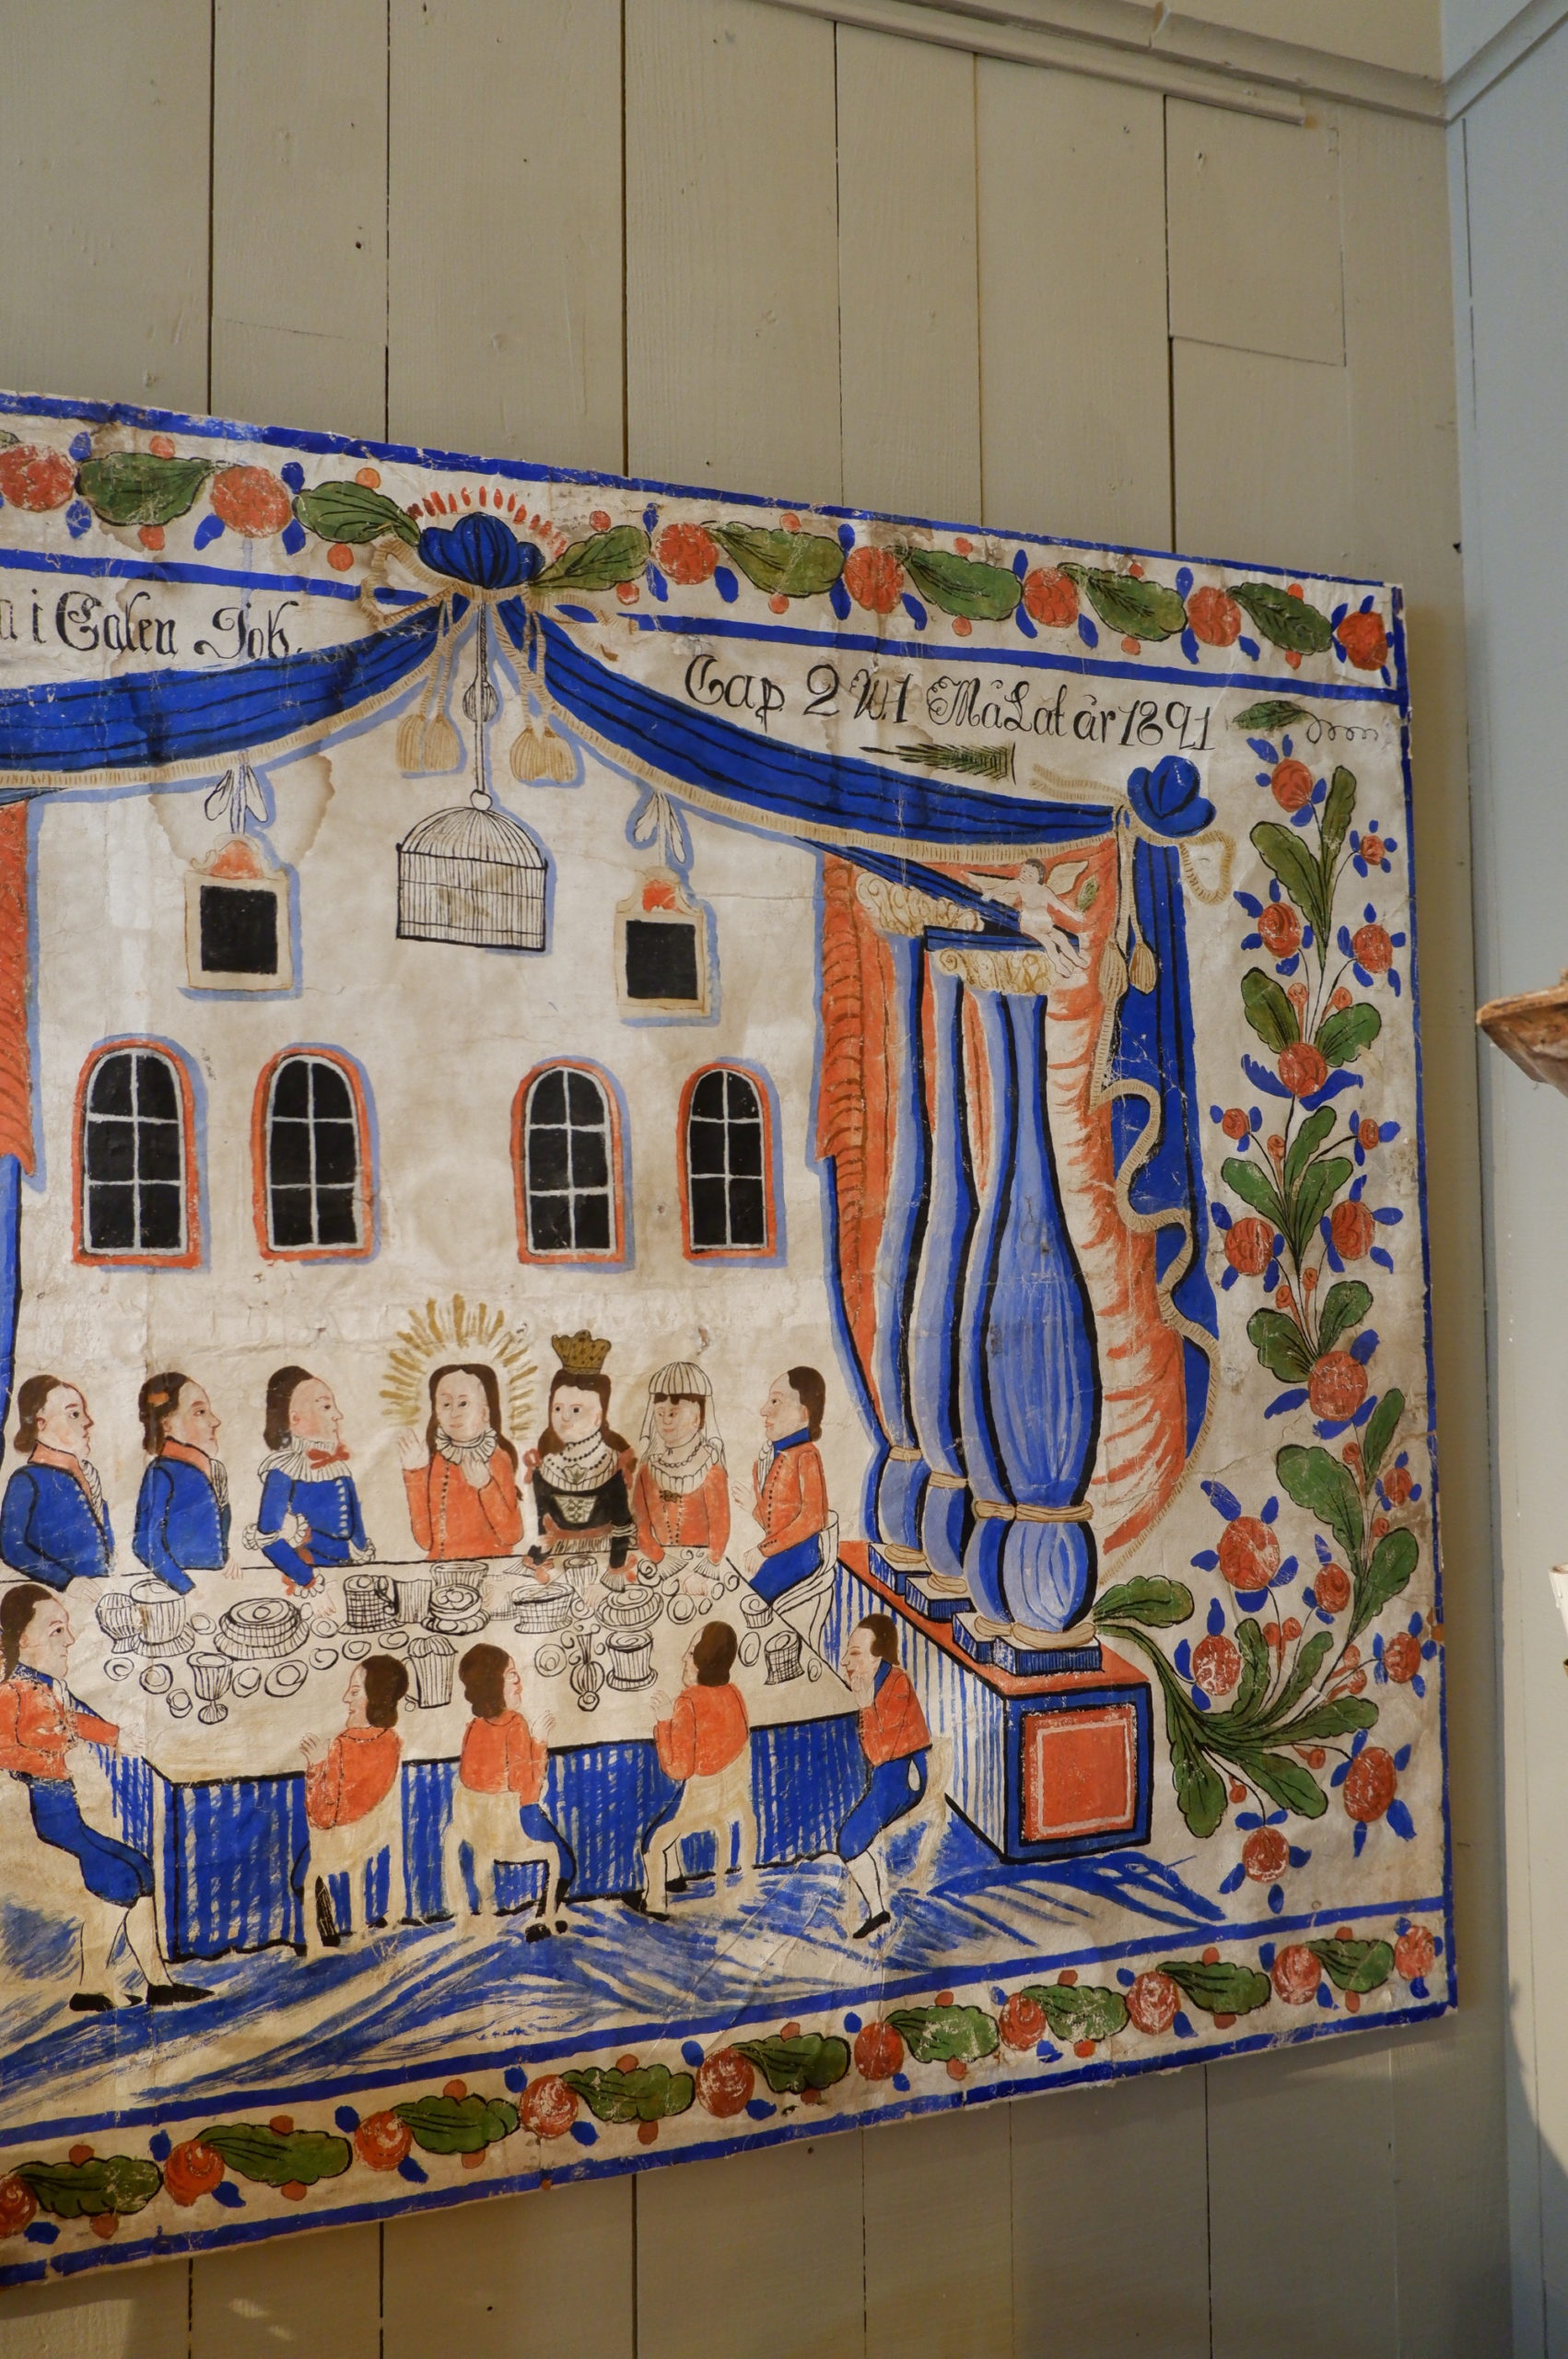 i Galen Joh.
Cap 2 W.1 MåLat år 1891